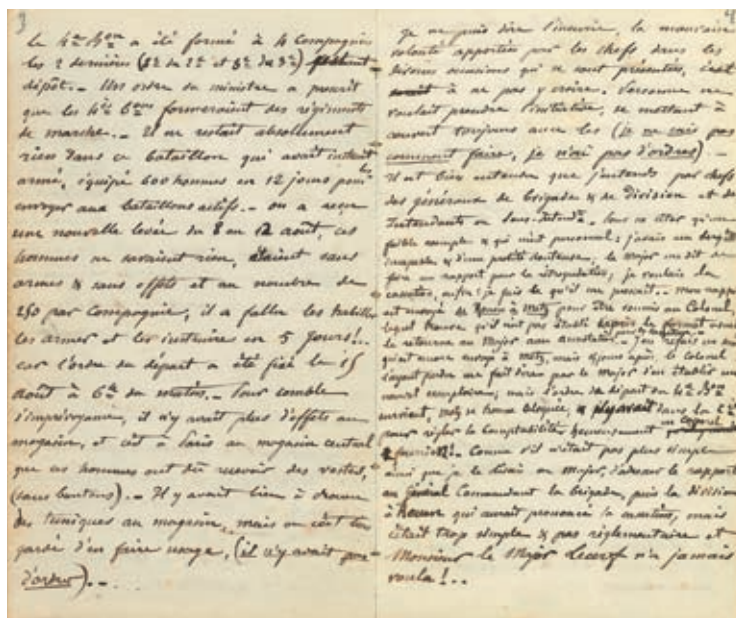 3
Le 4e Bon a été formé à 4 Compagnies
les 2 dernières (5e du 2e et 5e du 3e)
dépôt. _ Un ordre du ministre a prescrit
que les 4e Bons formeraient des régiments
de marche. _ Il ne restait absolument
rien dans ce bataillon qui avait instruit
armé, équipé 600 hommes en 12 jours pour les
envoyer aux bataillons actifs. _ on a reçu
une nouvelle levée du 8 au 12 août, ces
hommes ne savaient rien, étaient sans
armes & sans effets et au nombre de
250 par Compagnie, il a fallu les habiller
les armer et les instruire en 5 jours!..
car l'ordre du départ a été fixé le 15
août à 6h du matin. _ Pour comble
d'imprévoyance, il n'y avait plus d'effets au
magasin, et c'est à Paris au magasin central
que ces hommes ont dû recevoir des vestes,
(sans boutons). _ Il y avait bien à
des tuniques au magasin, mais on s'est bien
gardé d'en faire usage, (il n'y avait pas
d'ordre). _
4
Je ne puis dire l'incurie, la mauvaise
volonté apportées par les chefs dans les
diverses occasions qui se sont présentées, c'est
à ne pas y croire. Personne ne
voulait prendre l'initiative, se mettant à
couvert toujours avec les (je ne sais pas
comment faire, je n'ai pas d'ordres). _
Il est bien entendu que j'entends par chefs
des généraux de brigade & de Division et des
Intendants ou Sous-Intendts. Pour ne citer qu'un
faible exemple & qui m'est personnel: j'avais un sergent
incapable & d'une probité douteuse, le major me dit de
faire un rapport pour le rétrograder, je voulais la
cassation, enfin! je fis ce qu'il me prescrit.. mon rapport
est envoyé de à Metz pour être soumis au Colonel,
lequel trouve qu'il n'est pas établi d'après le format voulu
le retourne au Major avec annotation. _ J'en refais un autre
qu'est encore envoyé à Metz, mais 8 jours après, le Colonel
l'ayant perdu me fait dire par le Major d'en établir un
nouvel exemplaire; mais l'ordre du départ du 4e Bon
survient, Metz se trouve bloquée, & dans la 2e
pour régler la Comptabilité heureusement un caporal
& fourrier! _ Comme s'il n'était pas plus simple
ainsi que je le disais au Major, d'adresser le rapport
au Général Commandant la Brigade, puis la division
qui aurait prononcé la cassation, mais
c'était trop simple & pas réglementaire et
Monsieur le Major Lecerf n'a jamais
voulu!..